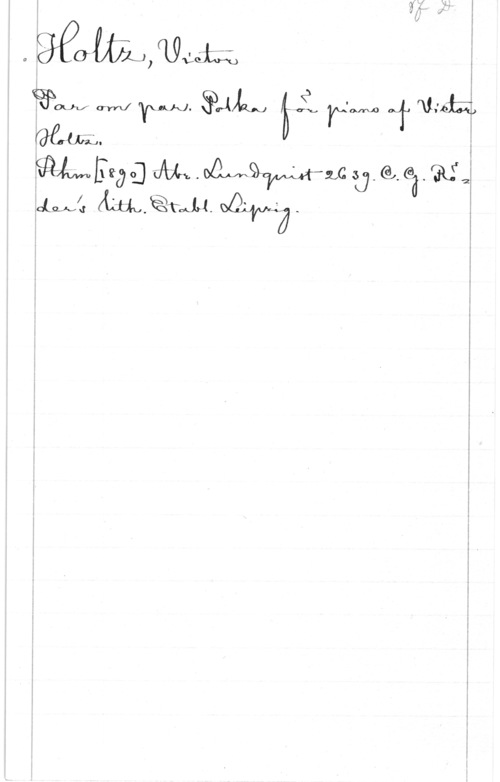 Holtz, Victor
Par om par. Polka för piano af Victor
Holtz.
Sthm [1890] Abr. Lundquist 2639. C. G. Rö=
der's lith. Etabl. Leipzig.